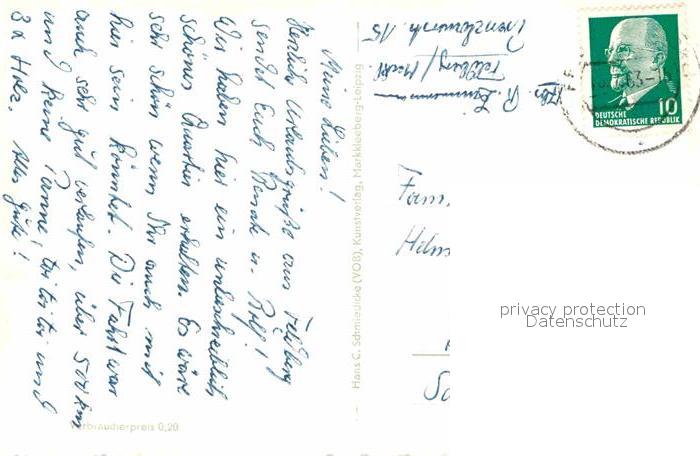 Meine Lieben!
Herzliche Urlaubsgrüße aus Feldberg
sendet Euch Renate u. Rolf!
Wir haben hier ein unbeschreiblich
schönes Quartier erhalten. Es wäre
sehr schön wenn Ihr auch mit
hier sein könntet. Die Fahrt war
auch sehr gut verlaufen, über 500 km
und keine Panne! toi toi toi und
3 x Holz. Alles Gute!
Verbraucherpreis 0,20
Hans C. Schmiedicke (VOB), Kunstverlag, Markkleeberg-Leipzig
R. Zimmermann
Feldberg/Meckl.
Prenzlauerstr. 15
10
DEUTSCHE
DEMOKRATISCHE REPUBLIK
Fam.
Helm
So
privacy protection
Datenschutz